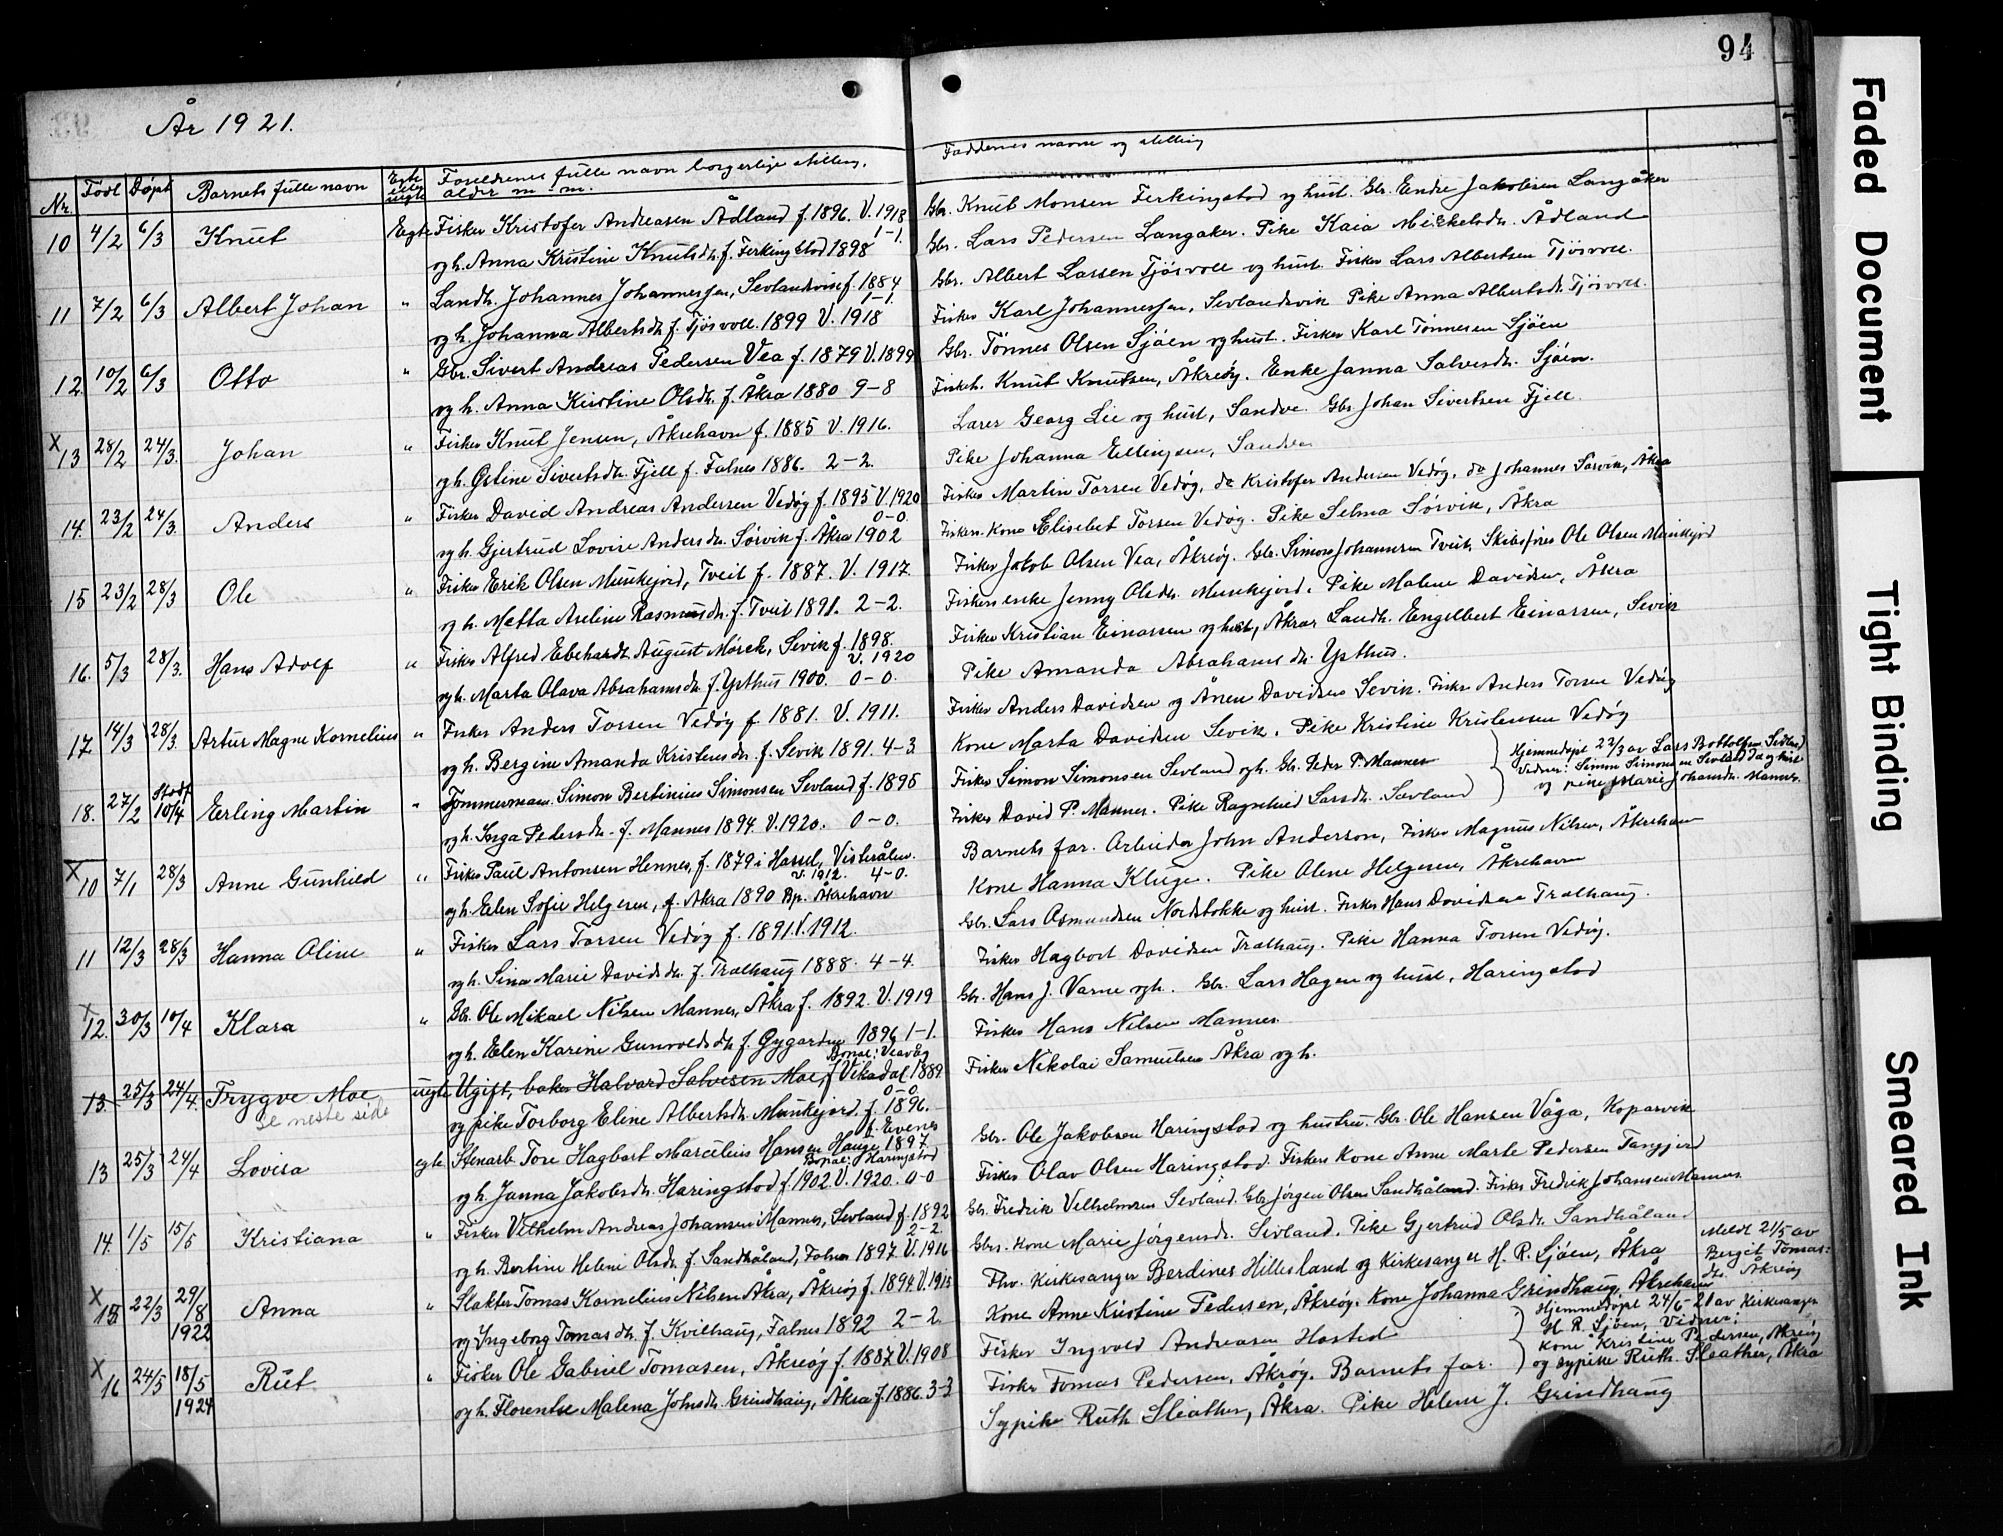 94
År 1921.
Nr. Født Døpt Barnets fulle navn Egte eller uegte Foreldrenes fulle navn borgerlige stilling, alder m-m. Faddernes navne og stilling
10 4/2 6/3 Knut Egte Fisker Kristofer Andreasen Ådland f. 1896. V. 1918 1-1. Gbr. Knut Monsen Ferkingstad og hust. Gbr. Endre Jakobsen Langåker
og h. Anna Kristine Knutsdtr. f. Ferkingstad 1898 Gbr. Lars Pedersen Langaker. Pike Kaia Mickelsdtr. Ådland
11 7/2 6/3 Albert Johan " Landh. Johannes Johannessen, Sevlandsvik f. 1884 1-1. Gbr. Albert Larsen Tjøsvoll og hust. Fisker Lars Albertsen Tjøsvoll.
og h. Johanna Albertsdtr. f. Tjøsvoll. 1899 V. 1918 Fisker Karl Johannessen, Sevlandsvik Pike Anna Albertsdtr. Tjøsvoll.
12. 10/2 6/3 Otto " Gbr. Sivert Andreas Pedersen Vea f. 1879 V. 1899 Gbr. Tønnes Olsen Sjøen og hust. Fisker Karl Tønnesen Sjøen
og h. Anna Kristine Olsdtr. f. Åkra 1880 9-8 Fiskeh. Knut Knutsen, Åkreøy. Enke Janna Salvesdtr. Sjøen.
X 13 28/2 24/3. Johan " Fisker Knut Jensen, Åkrehavn f. 1885 V. 1916. Lærer Georg Lie og hust, Sandve. Gbr Johan Sivertsen Fjell.
og h. Gstine Sivertsdtr. Fjell f. Falnes 1886. 2-2. Pike Johanna Ellingsen, Sandve
14. 23/2 24/3. Anders " Fisker David Andreas Andersen Vedøy f. 1895 V. 1920 0-0. Fisker Martin Torsen Vedøy, do Kristofer Andersen Vedøy, do Johannes Sørvik, Åkra
og h. Gjertrud Lovise Andersdtr. Sørvik f. Åkra 1902 Fiskers kone Elisebet Torsen Vedøy. Pike Selma Sørvik, Åkra
15 23/2 28/3 Ole " Fisker Erik Olsen Munkejord, Tveit f. 1887. V. 1917. Fisker Jakob Olsen Vea, Åkreøy. Gbr. Simon Johannesen Tveit, Skibsfører Ole Olsen Munkejord
og h. Metta Aseline Rasmusdtr. f. Tveit 1891. 2-2. Fiskers enke Jenny Olsdtr. Munkejord. Pike Malene Davidsen, Åkra
16. 5/3 28/3. Hans Adolf " Fisker Alfred Ebehardt August Mørck, Sevik f. 1898. V. 1920 Fisker Kristian Einarsen og hust, Åkra Landh. Engelbert Einarsen, Sevik
og h. Marta Olava Abrahamsdtr. f. Ysthus 1900. 0-0. Pike Amanda Abrahamsdtr. Ysthus.
17. 14/3 28/3. Artur Magne Kornelius " Fisker Anders Torsen Vedøy f 1881. V. 1911. Fisker Anders Davidsen og Ånen Davidsen Sevik. Fisker Anders Torsen Vedøy
og h. Bergine Amanda Kristensdtr. f. Sevik 1891. 4-3 Kone Marta Davidsen Sevik. Pike Kristine Kristensen Vedøy
18. 27/2 Stadf. 10/4 Erling Martin " Tømmermann Simon Bertinius Simonsen Sevland f. 1895 Fisker Simon Simonsen Sevland og h. Gbr. Peder P. Mannes Hjemmedøpt 22/3 av Lars Bottolfsen Sevland
Vidner: Simon Simonsen Sevland Da og hust
og pike Marie Johansdtr. Mannes.
og h. Inga Pedersdtr. f. Mannes 1894. V. 1920. 0-0. Fisker David P. Mannes. Pike Ragnhild Larsdtr. Sævland
X 10 7/1 28/3 Anne Gunhild " Fisker Paul Antonsen Hennes, f. 1879 i Hassel, Visterålen. V. 1912. 4-0. Barnets far. Arbeider John Anderson, Fisker Magnus Nilsen, Åkrehavn
og h. Elen Sofie Helgesen, f. Åkra 1890 Bp. Åkrehavn Kone Hanna Kluge. Pike Olene Helgesen, Åkrehavn
11 12/3 28/3 Hanna Oline " Fisker Lars Torsen Vedøy f. 1891 V. 1912. Gbr. Lars Asmundsen Nordstokke og hust. Fisker Hans Davidsen Trælhaug.
og h. Sina Marie Davidsdtr. f. Trælhaug 1888. 4-4. Fisker Hagbart Davidsen Trælhaug. Pike Hanna Torsen Vedøy.
X 12. 30/3 10/4 Klara " Gbr. Ole Mikael Nilsen Mannes, Åkra f. 1892. V. 1919 Gbr. Hans J. Varne og h. Gbr. Lars Hagen og hust, Haringstad
og h. Elen Karine Gunvoldsdtr. f. Gygarden 1896 1-1. Fisker Hans Nilsen Mannes
13. 25/3 24/4. Trygve Moe uegte Ugift, baker Halvard Salvesen Moe, f. Vikadal. 1889. Bopæl: Veavåg 0-0 Fisker Nikolai Samuelsen Åkra og h.
se neste side
og pike Torborg Eline Albertsdtr. Munkejord. f. 1896.
13 25/3 24/4 Lovisa egte Stenarb. Tore Hagbart Marcelius Hansen Hauge 1897. f. Evenes Bopæl: Haringstad Gbr. Ole Jakobsen Haringstad og hustru. Gbr. Ole Hansen Våga, Kopervik
og h. Janna Jakobsdtr. Haringstad f. 1902. V. 1920. 0-0 Fisker Olav Olsen Haringstad. Fiskers Kone Anne Marte Pedersen Tangjerd
14. 1/5 15/5 Kristiana " Fisker Vilhelm Andreas Johansen Mannes, Sevland f. 1892 2-2. Gbr. Fredrik Velhelmsen Sevland. Gbr Jørgen Olsen Sandhåland. Fisker Fredrik Johansen Mannes.
og h. Bertine Helene Olsdtr. f. Sandhåland, Falnes 1897. V. 1916 Gbrs. kone Marie Jørgensdtr. Sevland. Pike Gjertrud Olsdtr. Sandhåland
X 15. 22/3 29/8 1922 Anna " Slakter Tomas Kornelius Nilsen Åkra, Åkreøy f. 1894. V. 1915 Fhv. Kirkesanger Berdines Hillesland og Kirkesanger H. R. Sjøen, Åkra Meldt 21/5 av
Berget Tomas-
dtr. Åkreøy
og Ingeborg Tomasdtr. f. Kvilhaug, Falnes 1892 2-2. Kone Anne Kristine Pedersen, Åkreøy. Kone Johanna Grindhaug, Åkrehavn
X 16 24/5 18/5 1924 Rut " Fisker Ole Gabriel Tomasen, Åkreøy f. 1887. V. 1908 Fisker Ingvald Andreasen Hasted Hjemmedøpt 24/6-21 av Kirkesanger
H. R. Sjøen, Vidner:
Kone Kristine Pedersen, Åkreøy
og sypike Ruth Sleather, Åkra
og h. Florentse Malena Johsdtr. Grindhaug, Åkra f. 1886. 3-3 Fisker Tomas Pedersen, Åkrøy. Barnets far.
Sypike Ruth Sleather, Åkra. Pike Helene J. Grindhaug
Faded Document
Tight Binding
Smeared Ink